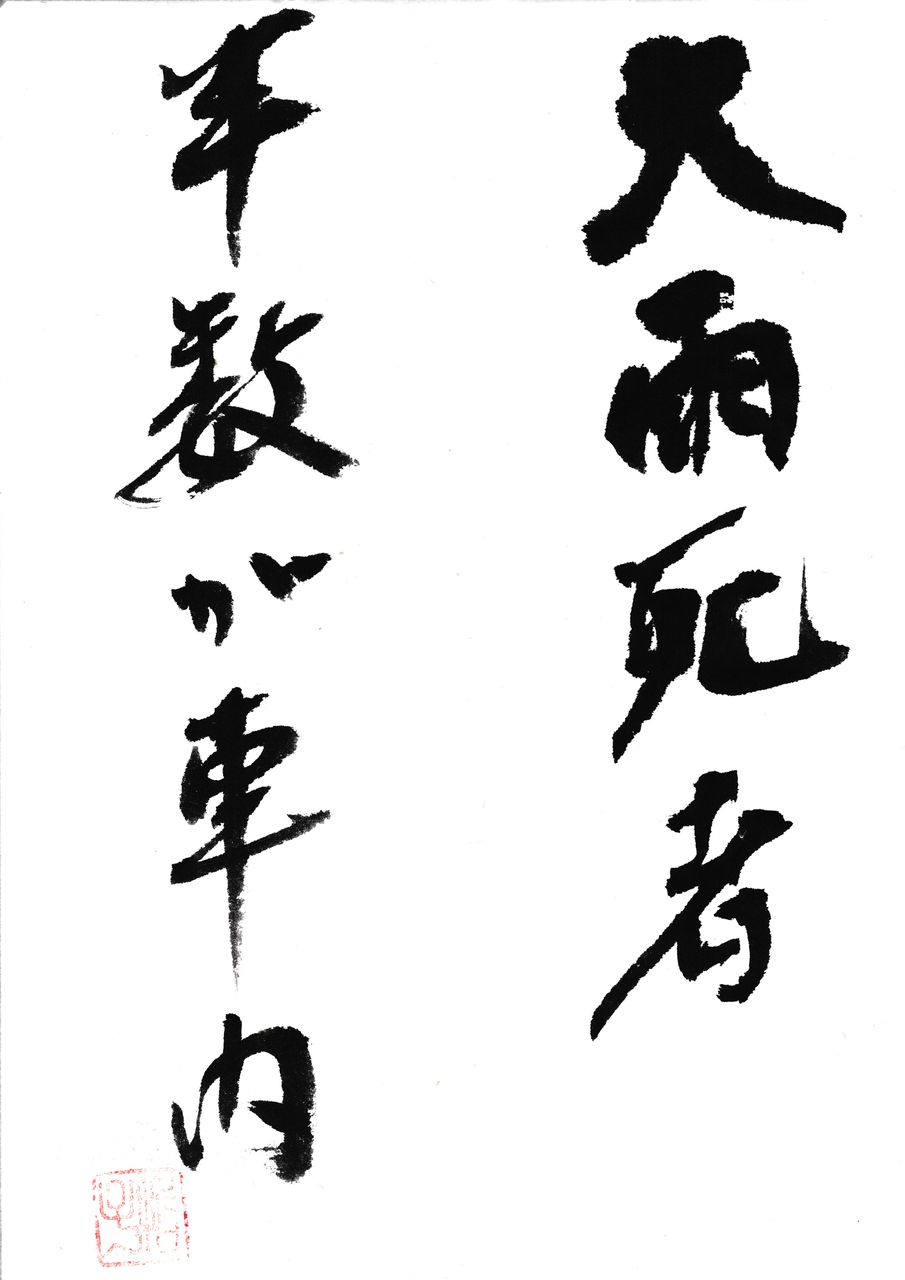 大雨死者
半数が車内